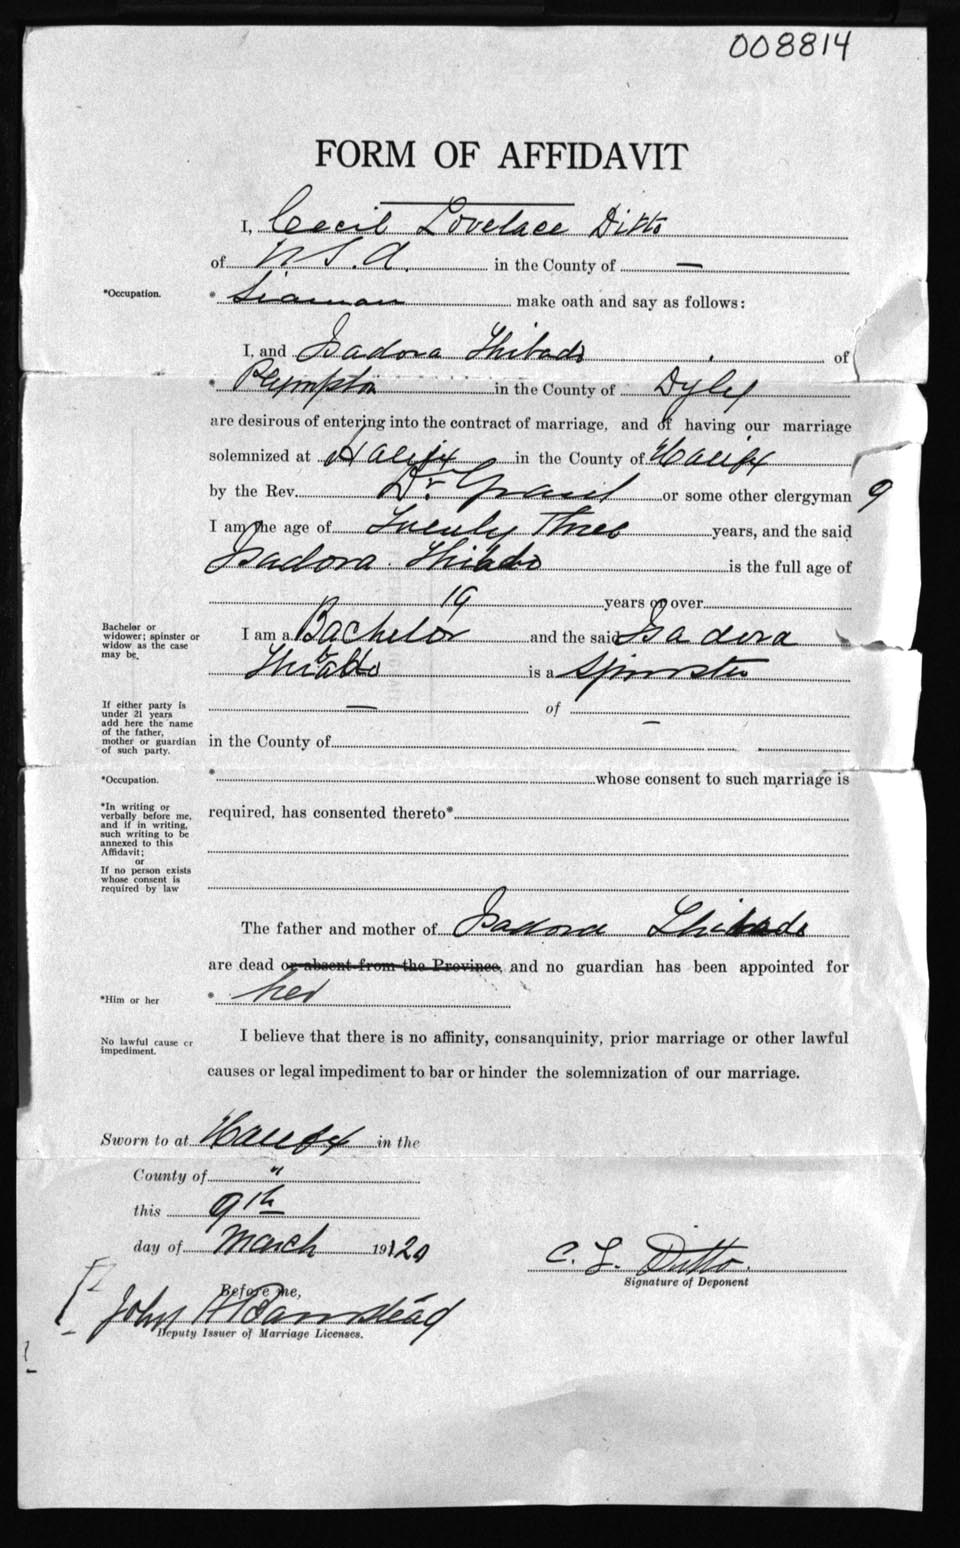 008814
FORM OF AFFIDAVIT
I, Cecil Lovelace Ditto
of U.S.A. in the County of —
*Occupation. * Siaman make oath and say as follows:
I, and Isadora Thibado of
* Plympton in the County of Dyby
are desirous of entering into the contract of marriage, and of having our marriage
solemnized at Halifx in the County of Halifx
by the Rev. Dr. Grant or some other clergyman 9
I am the age of Twenty Three years, and the said
Isadora Thibado is the full age of
19 years or over
Bachelor or
widower; spinster or
widow as the case
may be.
I am a Bachelor and the said Isadora
Thibado is a Spinster
If either party is
under 21 years
add here the name
of the father,
mother or guardian
of such party.
— of —
in the County of
*Occupation. * whose consent to such marriage is
*In writing or
verbally before me,
and if in writing,
such writing to be
annexed to this
Affidavit;
or
If no person exists
whose consent is
required by law
required, has consented thereto*
The father and mother of Isadora Thibado
are dead or absent from the Province, and no guardian has been appointed for
*Him or her * her
No lawful cause or
impediment.
I believe that there is no affinity, consanquinity, prior marriage or other lawful
causes or legal impediment to bar or hinder the solemnization of our marriage.
Sworn to at Halifx in the
County of "
this 9th
day of March 1920
C. L. Ditto.
Signature of Deponent
Before me,
John
Deputy Issuer of Marriage Licenses.